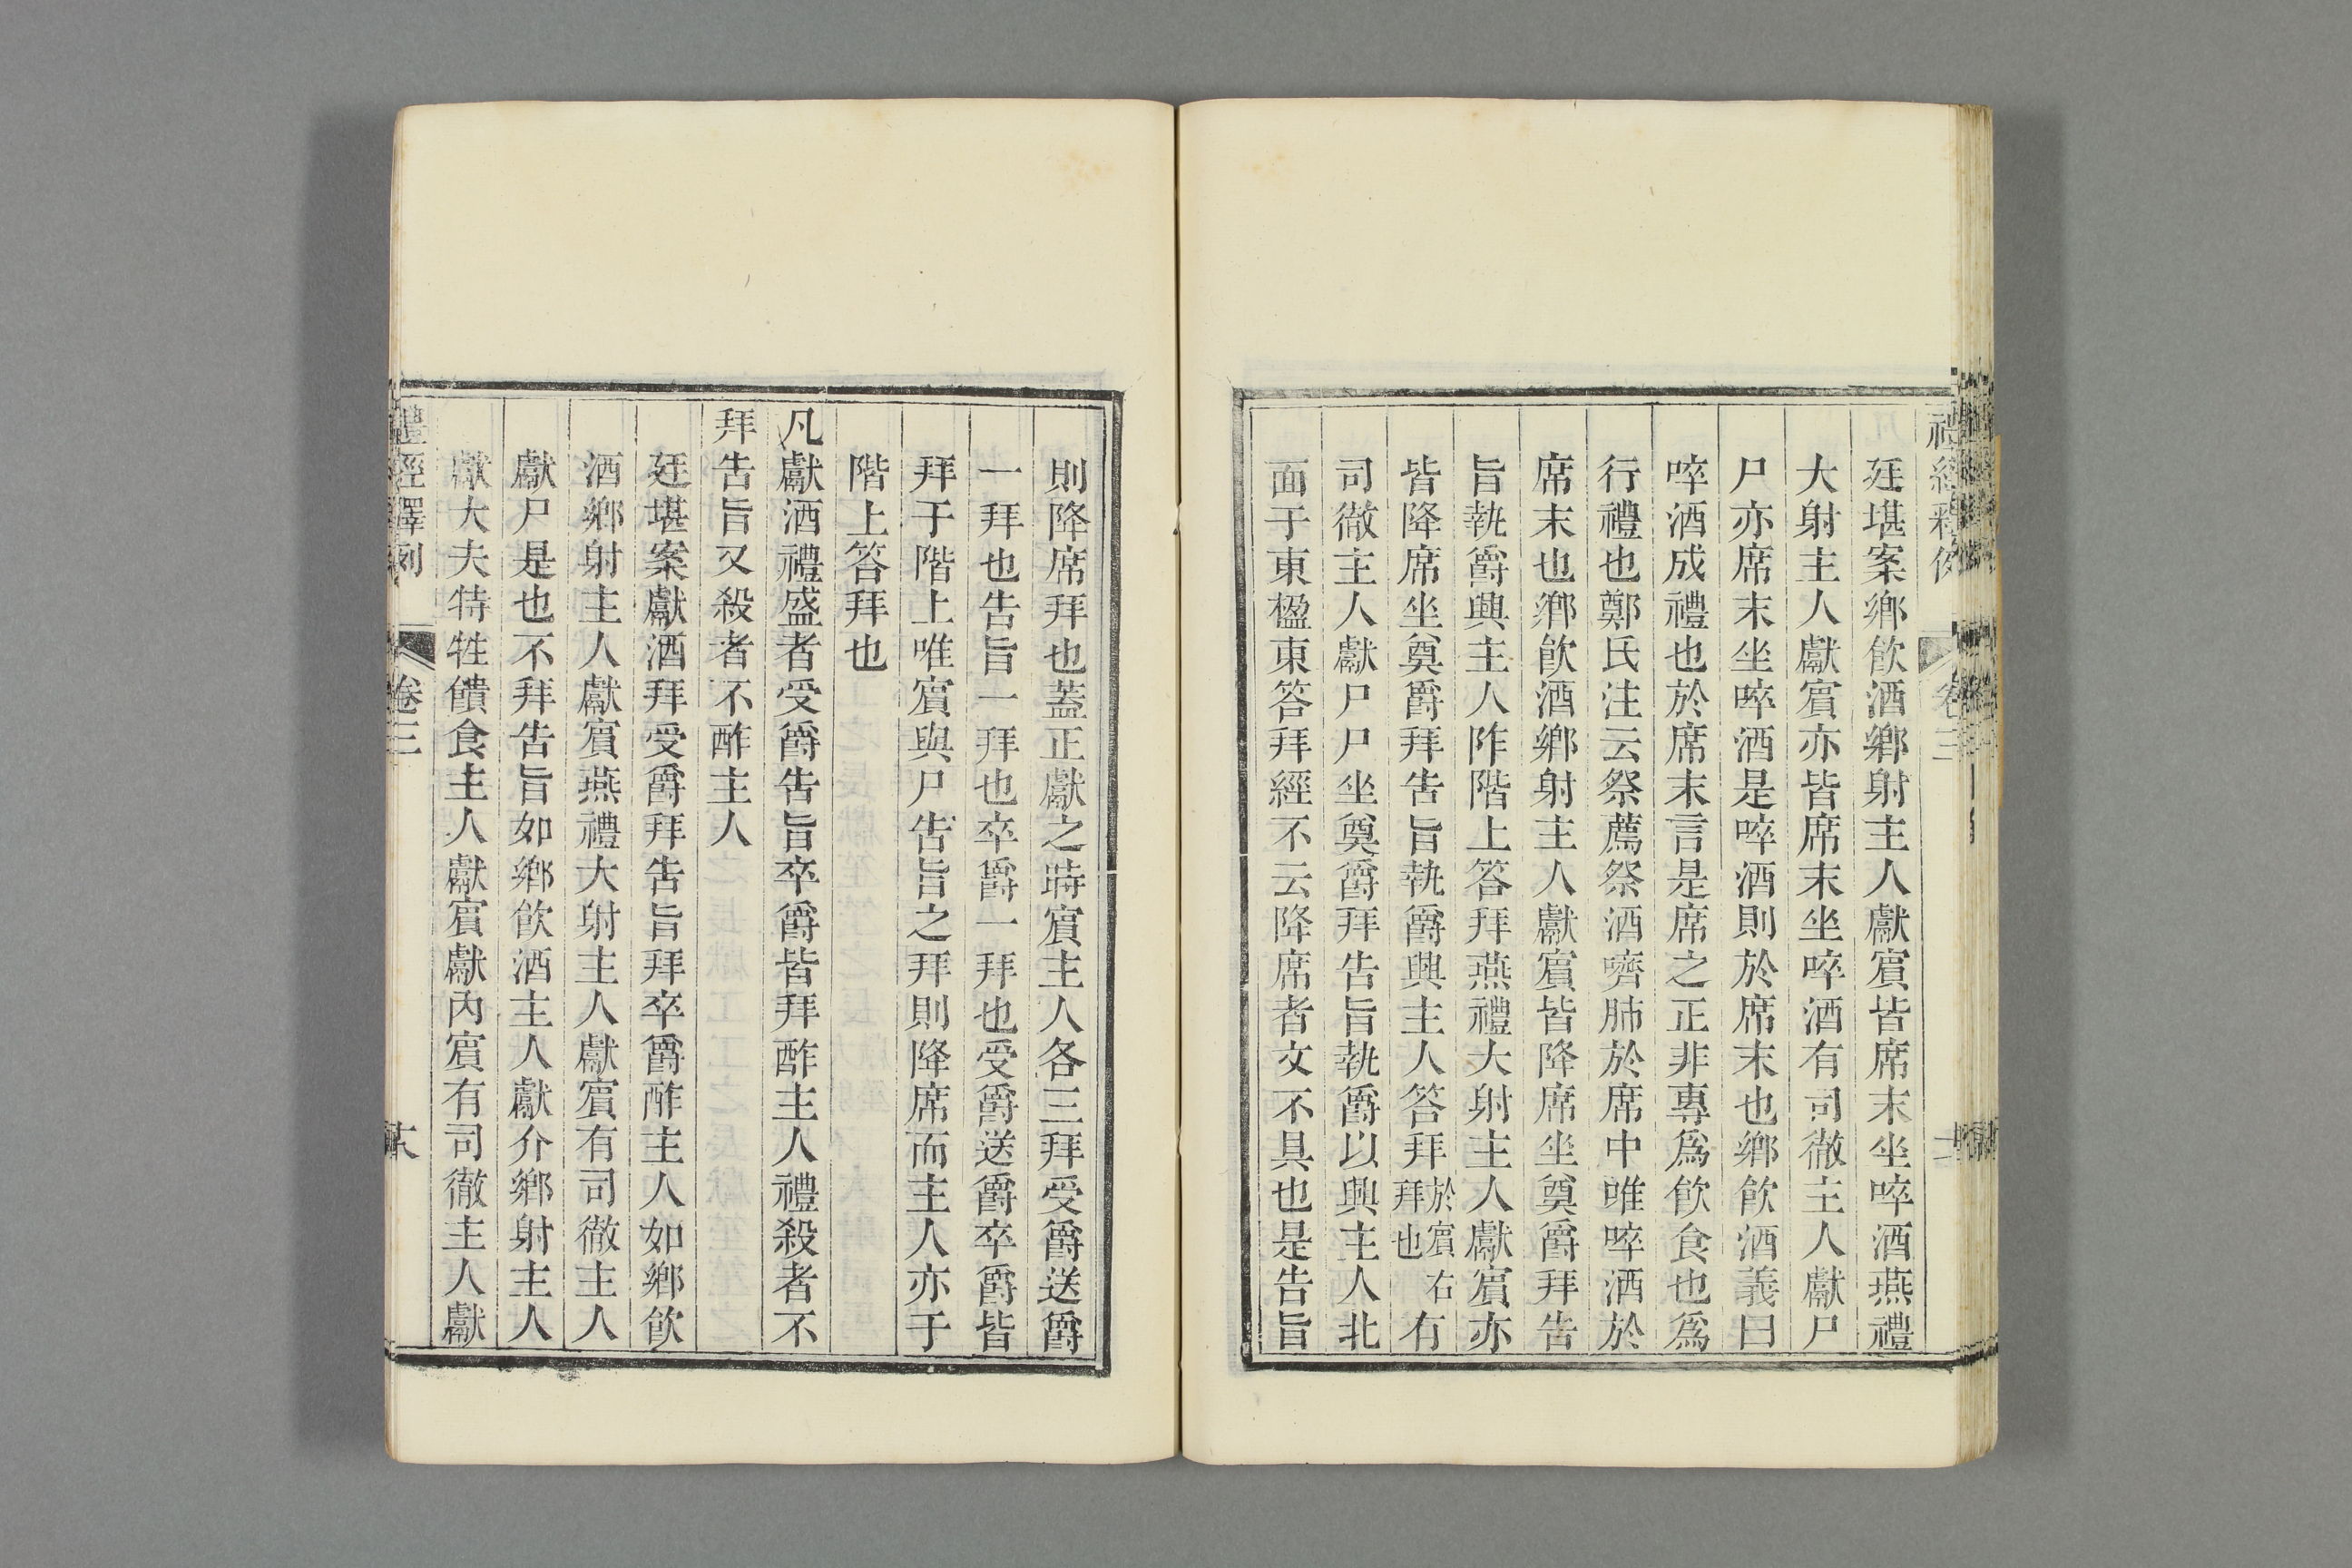 禮經釋例 卷三
廷堪案鄉飮酒鄉射主人獻賓皆席末坐啐酒燕禮
大射主人獻賓亦皆席末坐啐酒有司徹主人獻尸
尸亦席末坐啐酒是啐酒則於席末也鄉飮酒義曰
啐酒成禮也於席末言是席之正非專爲飮食也爲
行禮也鄭氏注云祭薦祭酒嚌肺於席中唯啐酒於
席末也鄉飮酒鄉射主人獻賓皆降席坐奠爵拜告
旨執爵興主人阼階上答拜燕禮大射主人獻賓亦
皆降席坐奠爵拜告旨執爵興主人答拜於賓右拜也有
司徹主人獻尸尸坐奠爵拜告旨執爵以興主人北
面于東楹東答拜經不云降席者文不具也是告旨
則降席拜也蓋正獻之時賓主人各三拜受爵送爵
一拜也告旨一拜也卒爵一拜也受爵送爵卒爵皆
拜于階上唯賓與尸告旨之拜則降席而主人亦于
階上答拜也
凡獻酒禮盛者受爵告旨卒爵皆拜酢主人禮殺者不
拜告旨又殺者不酢主人
廷堪案獻酒拜受爵拜告旨拜卒爵酢主人如鄉飮
酒鄉射主人獻賓燕禮大射主人獻賓有司徹主人
獻尸是也不拜告旨如鄉飮酒主人獻介鄉射主人
獻大夫特牲饋食主人獻賓獻內賓有司徹主人獻
禮經釋例 卷三